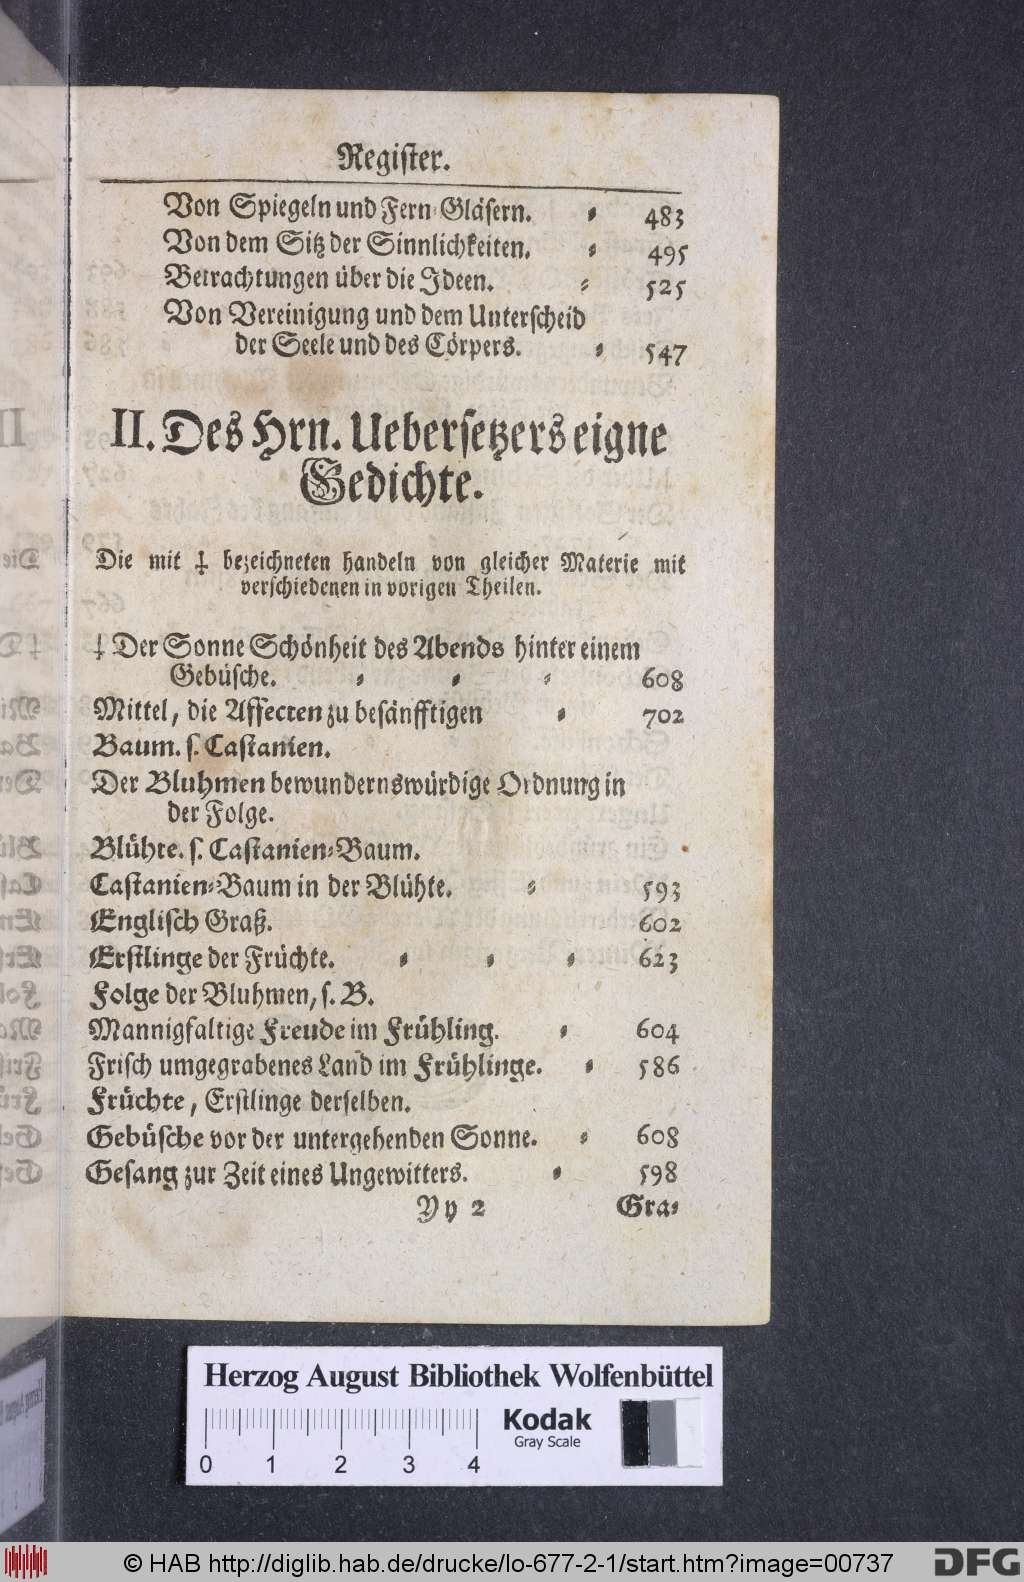 Register.
Von Spiegeln und Fern-Gläsern. 483
Von dem Sitz der Sinnlichkeiten. 495
Betrachtungen über die Ideen. 525
Von Vereinigung und dem Unterscheid
der Seele und des Cörpers. 547
II. Des Hrn. Uebersetzers eigne
Gedichte.
Die mit ‡ bezeichneten handeln von gleicher Materie mit
verschiedenen in vorigen Theilen.
‡ Der Sonne Schönheit des Abends hinter einem
Gebüsche. 608
Mittel, die Affecten zu besänfftigen 702
Baum. s. Castanien.
Der Bluhmen bewundernswürdige Ordnung in
der Folge.
Blühte. s. Castanien-Baum.
Castanien-Baum in der Blühte. 593
Englisch Graß. 602
Erstlinge der Früchte. 623
Folge der Bluhmen, s. B.
Mannigfaltige Freude im Frühling. 604
Frisch umgegrabenes Land im Frühlinge. 586
Früchte, Erstlinge derselben.
Gebüsche vor der untergehenden Sonne. 608
Gesang zur Zeit eines Ungewitters. 598
Yy 2 Gra-
Herzog August Bibliothek Wolfenbüttel
Kodak
Gray Scale
0 1 2 3 4
© HAB http://diglib.hab.de/drucke/lo-677-2-1/start.htm?image=00737
DFG